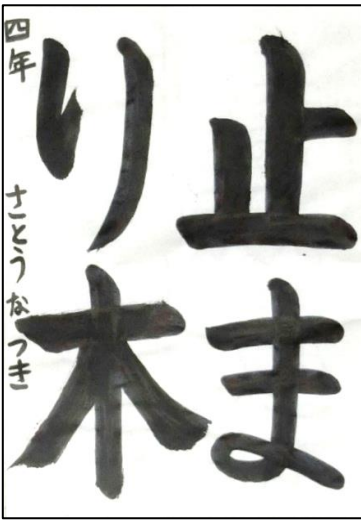 止ま
り木
四年 さとうなつき